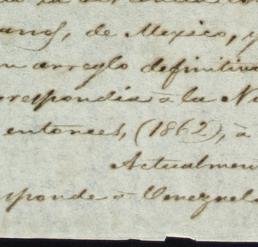 anos, de Mexico, y
n arreglo definitivo
respondia á la N
entonces, (1862), á
Actualmen
sponde á Venezuel